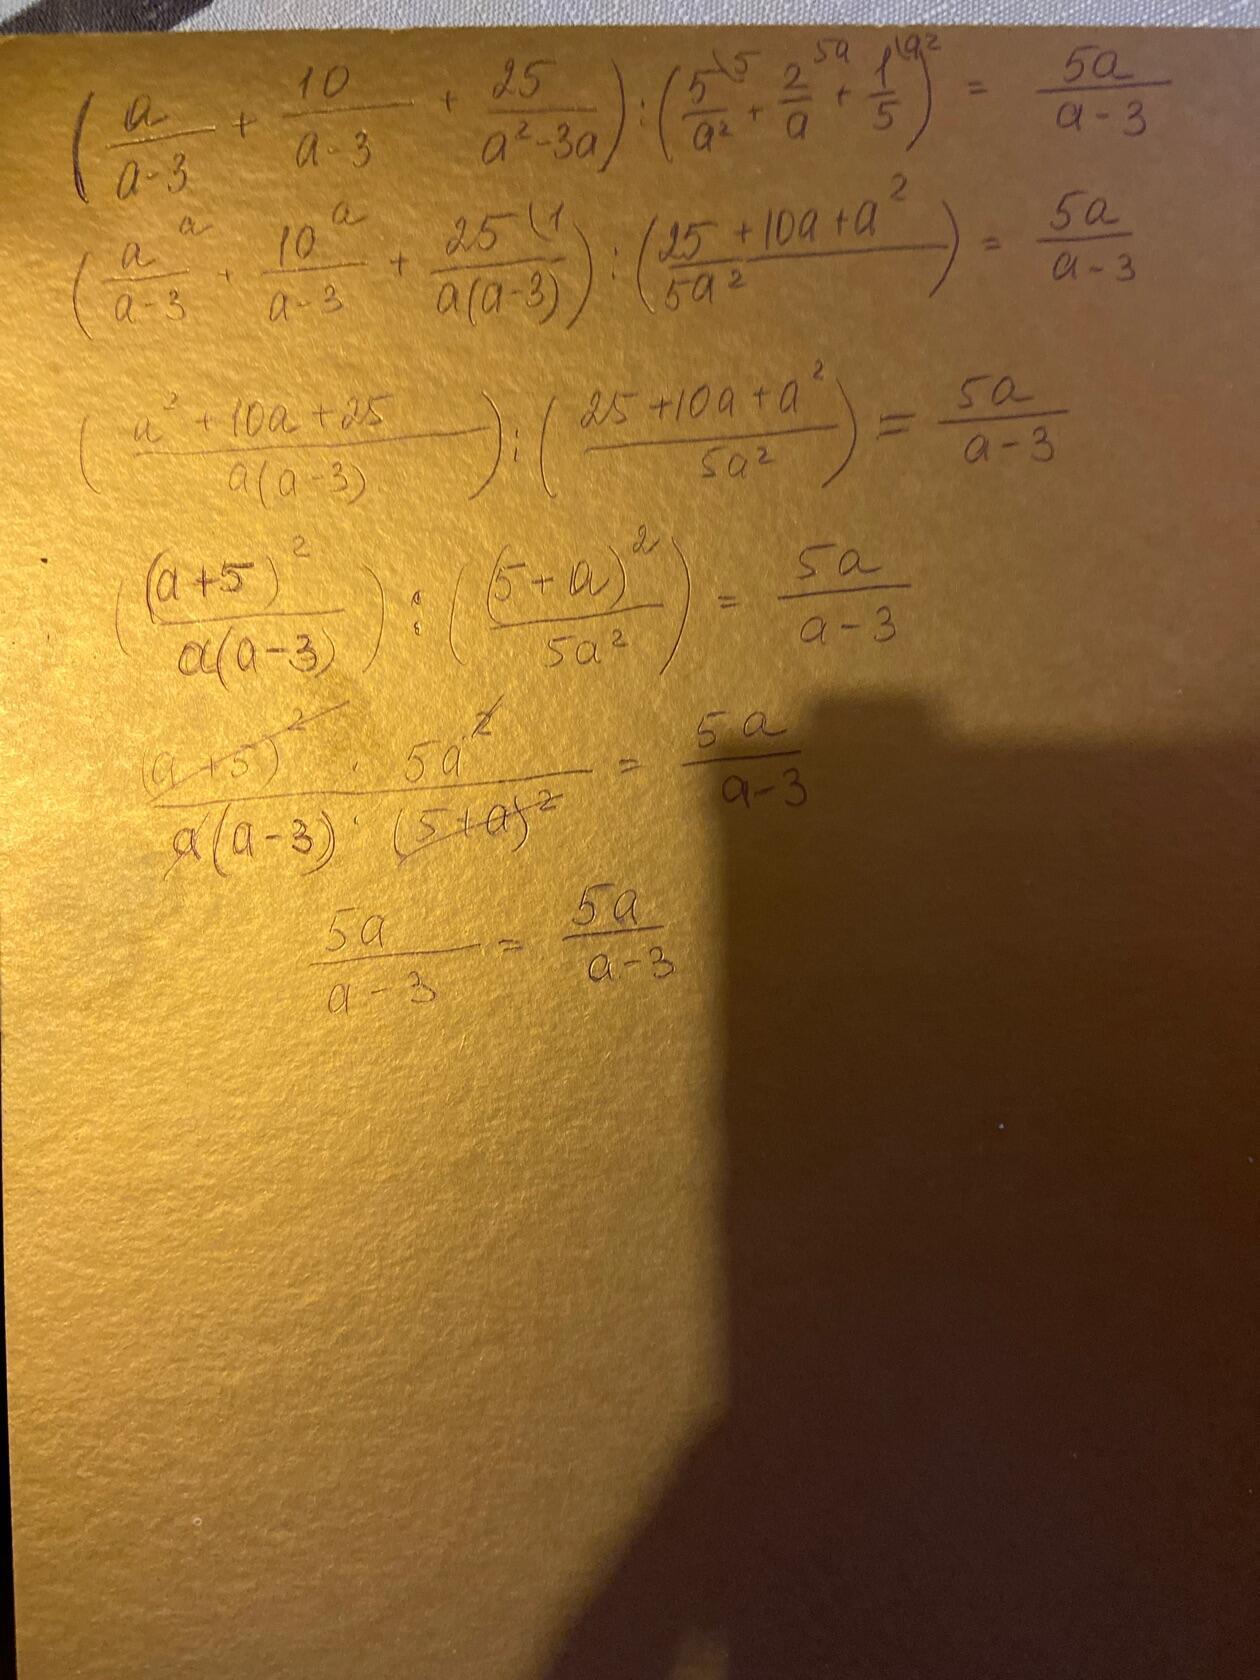 (a/(a-3) + 10/(a-3) + 25/(a²-3a)) : (5\5/a² + 2 5a/a + 1\a²/5) = 5a/(a-3)
(a a/(a-3) + 10 a/(a-3) + 25\1/(a(a-3))) : ((25+10a+a²)/5a²) = 5a/(a-3)
((a²+10a+25)/(a(a-3))) : ((25+10a+a²)/5a²) = 5a/(a-3)
((a+5)²/(a(a-3))) : ((5+a)²/5a²) = 5a/(a-3)
((a+5)² · 5a²)/(a(a-3) · (5+a)²) = 5a/(a-3)
5a/(a-3) = 5a/(a-3)